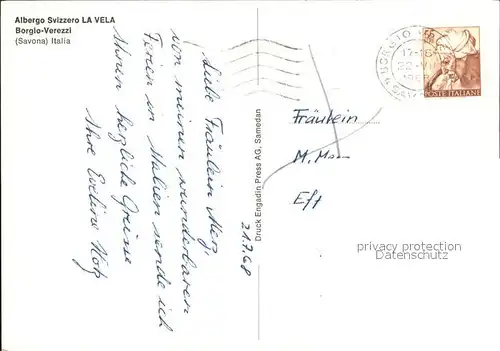 Albergo Svizzero LA VELA
Borgio-Verezzi
(Savona) Italia
Liebe Fräulein Merz,
von meinen wunderbaren
Ferien in Italien sende ich
Ihnen herzliche Grüsse
Ihre Eveline Hotz
21.7.68
Druck Engadin Press AG, Samedan
POSTE ITALIANE
Fräulein
M.
privacy protection
Datenschutz